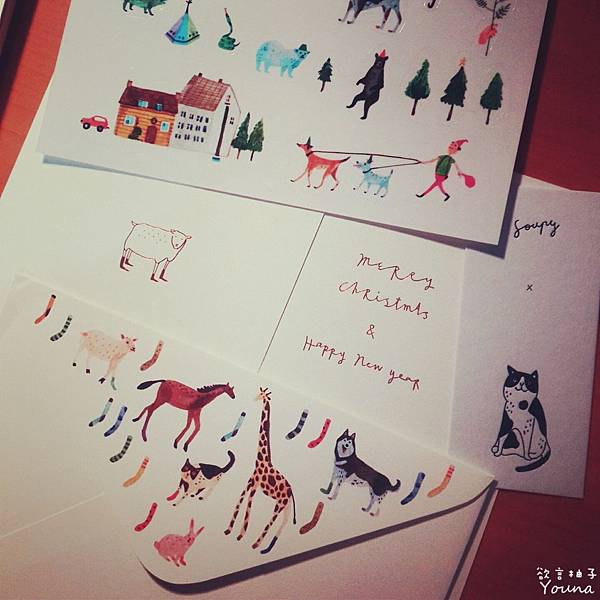 Soupy
x
Merry
Christmas
&
Happy New year
欲言柚子
Youna